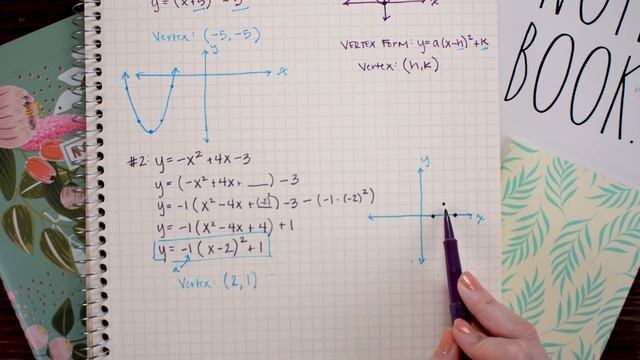 y = (x+5)² - 5
Vertex: (-5,-5)
y
x
x
VERTEX FORM: y=a(x-h)²+k
Vertex: (h,k)
#2: y = -x² + 4x - 3
y = (-x² + 4x + __) - 3
y = -1(x² - 4x + (-2)²) - 3 - (-1·(-2)²)
y = -1(x² - 4x + 4) + 1
y = -1(x-2)² + 1
a
Vertex: (2,1)
y
x
BOOK.